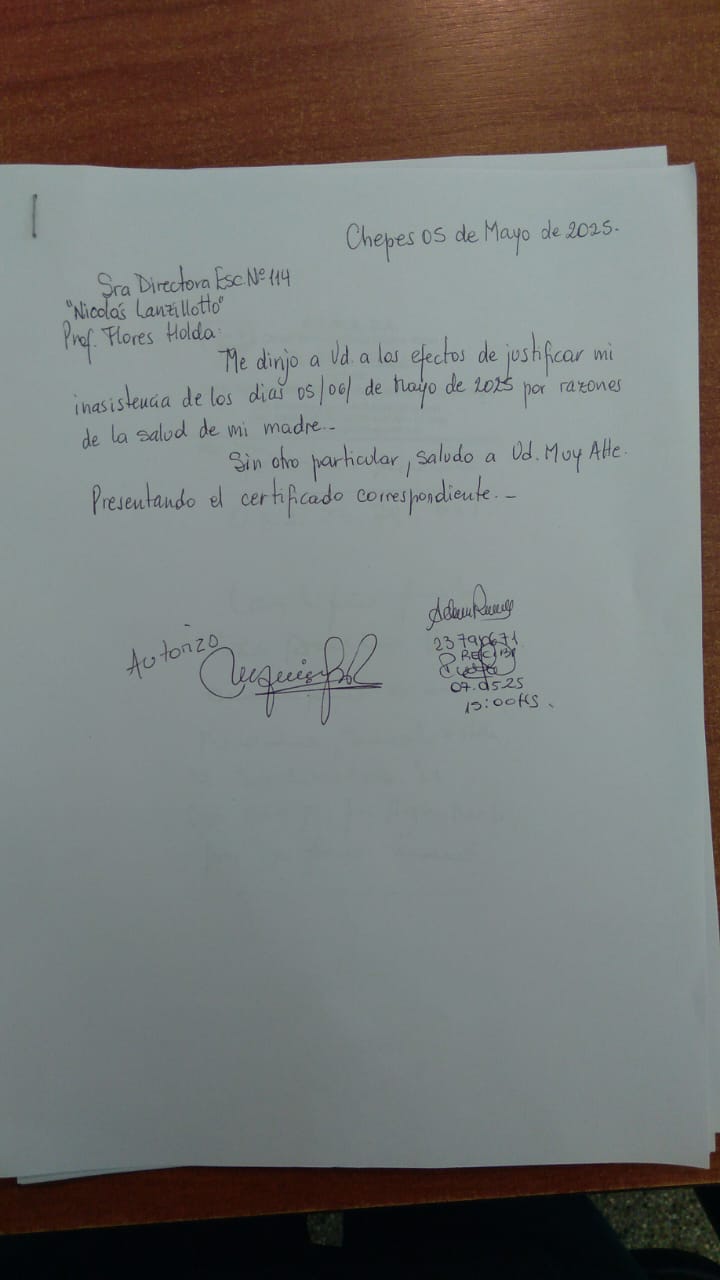 Chepes 05 de Mayo de 2025.
Sra Directora Esc. Nº 114
"Nicolás Lanzillotto"
Prof. Flores Holda:
Me dirijo a Ud. a los efectos de justificar mi
inasistencia de los dias 05/06/ de Mayo de 2025 por razones
de la salud de mi madre.-
Sin otro particular, saludo a Ud. Muy Atte.
Presentando el certificado correspondiente.-
Autorizo
RECIBI
07.05.25
19:00HS.